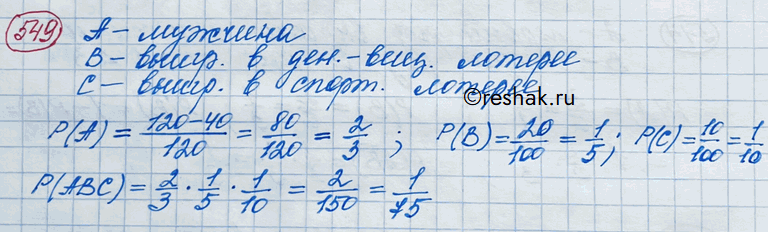 549 A – мужчина
B – выигр. в ден.-вещ. лотерее
C – выигр. в спорт. лотерее
©reshak.ru
P(A) = \frac{120-40}{120} = \frac{80}{120} = \frac{2}{3} ; P(B) = \frac{20}{100} = \frac{1}{5} ; P(C) = \frac{10}{100} = \frac{1}{10}
P(ABC) = \frac{2}{3} · \frac{1}{5} · \frac{1}{10} = \frac{2}{150} = \frac{1}{75}